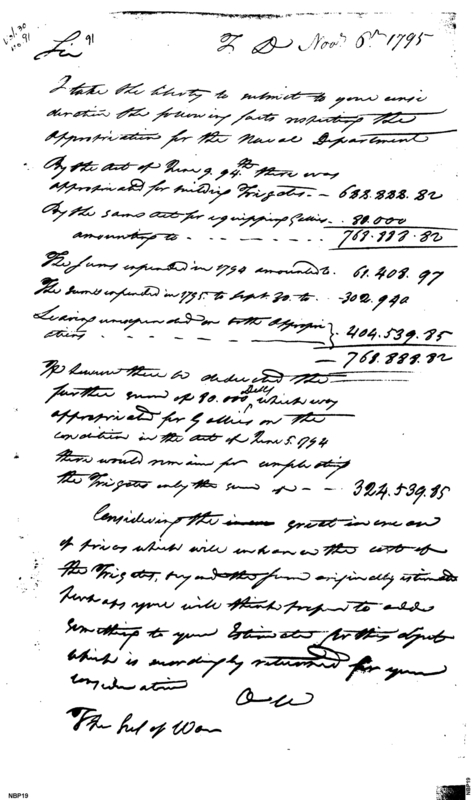 Vol. 30
No 91
Sir 91 T D Novr 6th 1795
I take the liberty to submit to your consi
deration the following facts respecting the
Appropriation for the Naval Department
By the Act of June 9. 94th there was
appropriated for building Frigates. — 688.888.82
By the same Act for equipping Gallies . 80.000
amounting to . - - - - - 768.888.82
The sums expended in 1794 amounted to. 61.408.97
The sums expended in 1795. to Sept. 30. to . - 302.940
Leaving unexpended on both Appropri
ations . - - - - } 404.539.85
— 768.888.82
If however there be deducted the
further sum of 80.000 Dolls which was
appropriated for Gallies on the
condition in the Act of June 5. 1794
there would remain for completing
the Frigates only the sum of — — 324.539.85
Considering the great increase
of prices which will enhance the cost of
the Frigates, beyond the sum originally estimated
perhaps you will think proper to add
something to your Estimate for this object
which is accordingly returned for your
consideration
O W
The Sec of War
NBP19
NBP19